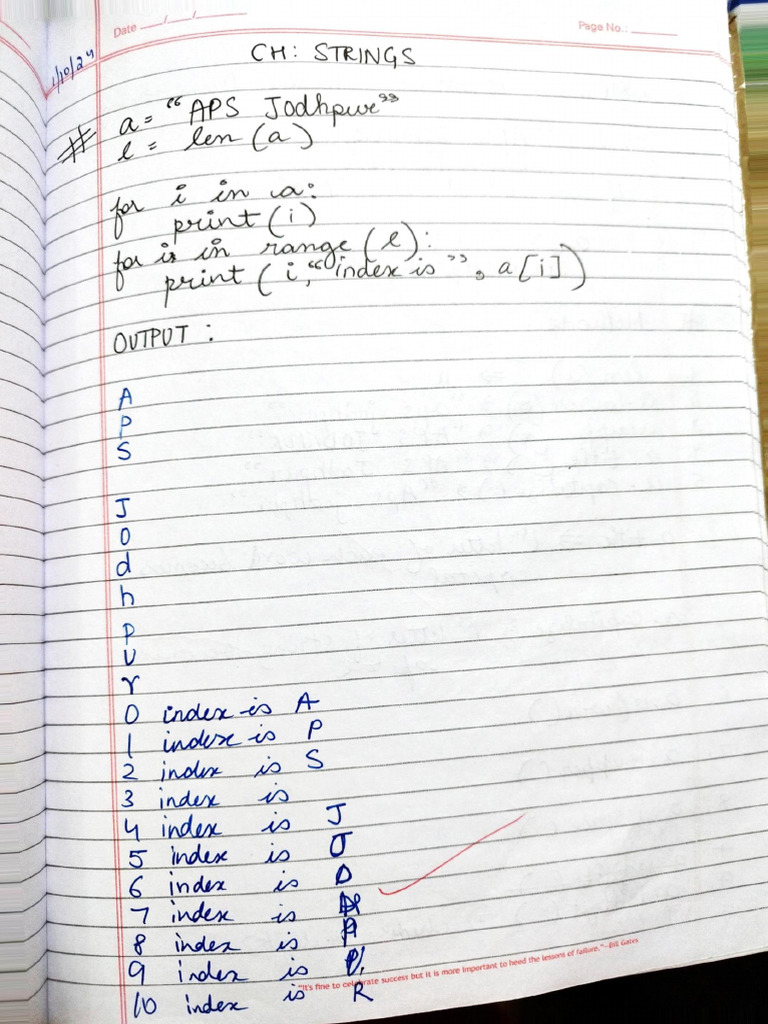 Date __/__/__
Page No.: ____
1/10/24
CH: STRINGS
# a = "APS Jodhpur"
l = len(a)
for i in a:
print(i)
for i in range(l):
print(i,"index is", a[i])
OUTPUT :
A
P
S
J
o
d
h
P
U
r
0 index is A
1 index is P
2 index is S
3 index is
4 index is J
5 index is O
6 index is D
7 index is
8 index is P
9 index is
10 index is R
"It's fine to celebrate success but it is more important to heed the lessons of failure."-Bill Gates